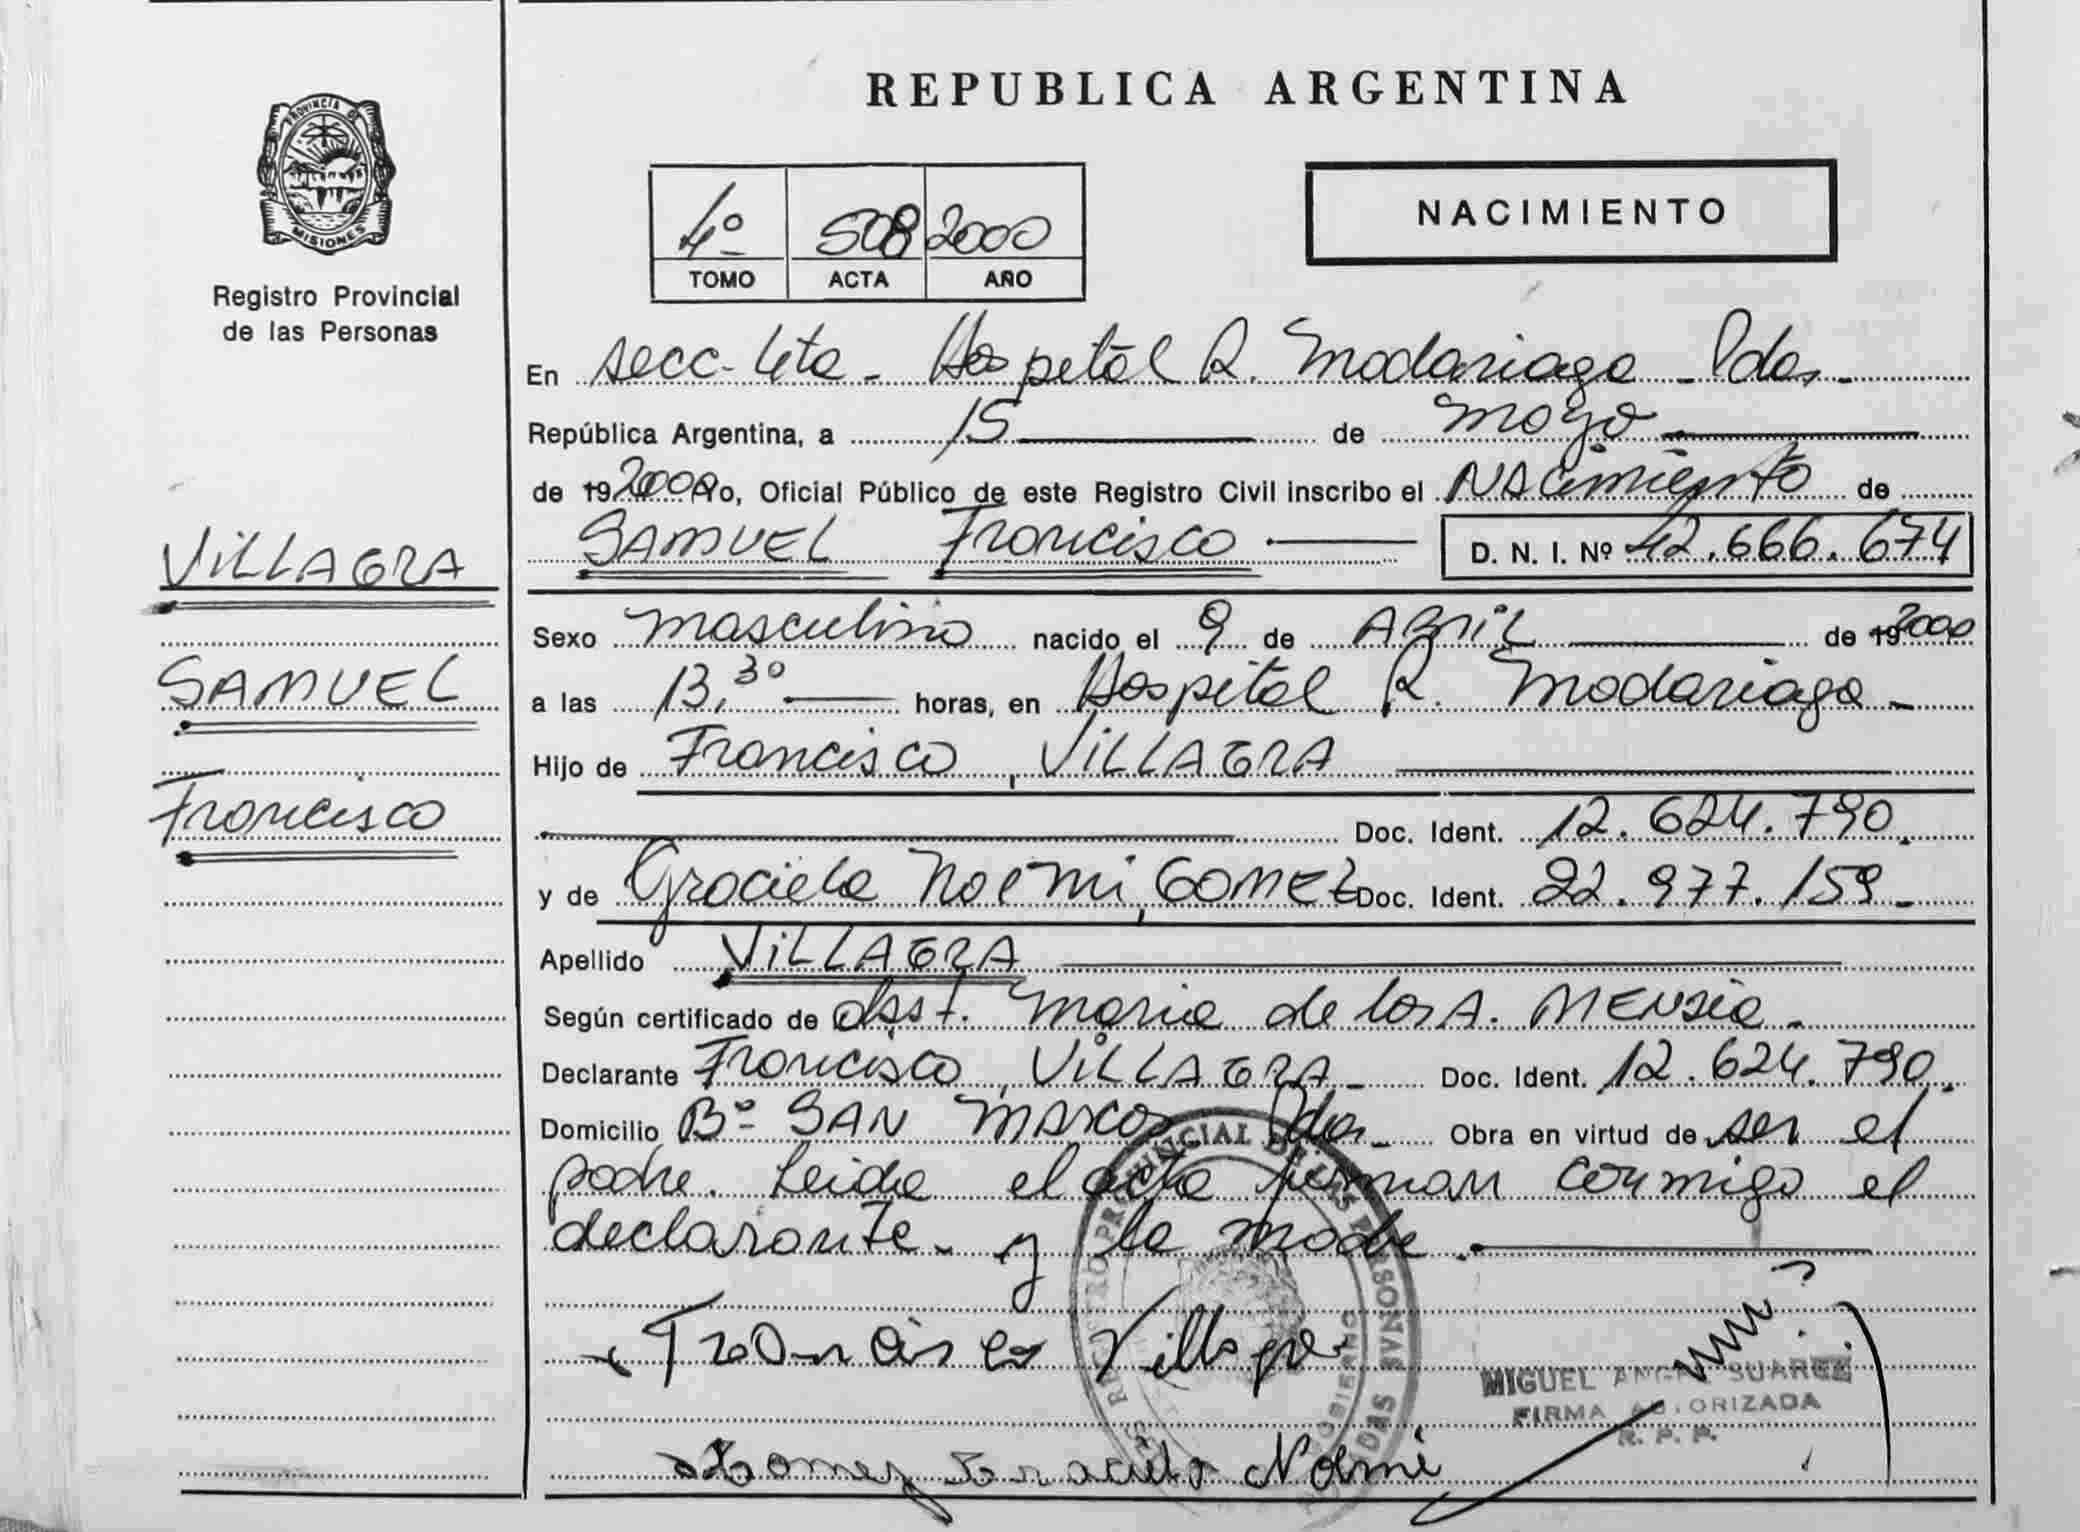 PROVINCIA DE
MISIONES
Registro Provincial
de las Personas
VILLAGRA
SAMUEL
Francisco
REPUBLICA ARGENTINA
4º 508 2000
TOMO ACTA AÑO
NACIMIENTO
En secc. 4ta - Hospital R. Madariaga - Pdas.
República Argentina, a 15 de mayo
de 192000 Yo, Oficial Público de este Registro Civil inscribo el NACimiento de
SAMUEL Francisco D. N. I. Nº 42.666.674
Sexo masculino nacido el 9 de ABRIL de 192000
a las 13,30 horas, en Hospital R. Madariaga -
Hijo de Francisco, VILLAGRA
Doc. Ident. 12.624.790.
y de Graciela Noemi, GOMEZ Doc. Ident. 22.977.159 -
Apellido VILLAGRA
Según certificado de Obst. Maria de los A. MENSIA -
Declarante Francisco, VILLAGRA - Doc. Ident. 12.624.790.
Domicilio Bº SAN MARCOS Pdas. Obra en virtud de ser el
padre. Leida el acta firman conmigo el
declarante - y la madre.
Francisco Villagra
MIGUEL ANGEL SUAREZ
FIRMA AUTORIZADA
R. P. P.
Gomez Graciela Noemi